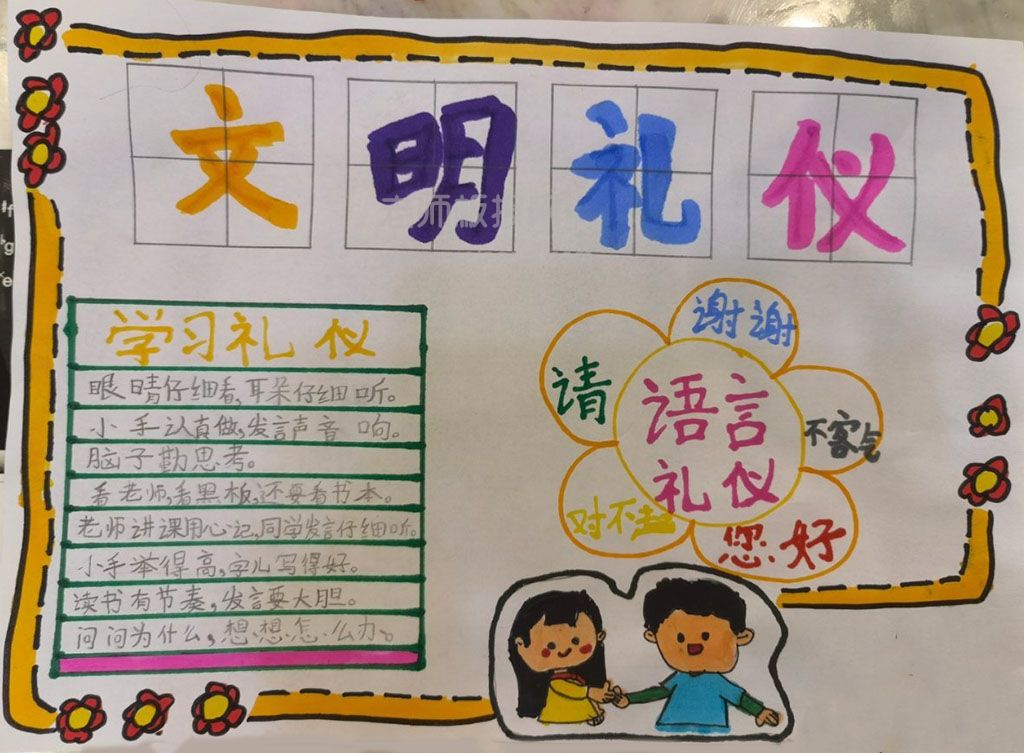 文明礼仪
学习礼仪
眼睛仔细看,耳朵仔细听。
小手认真做,发言声音响。
脑子勤思考。
看老师,看黑板,还要看书本。
老师讲课用心记,同学发言仔细听。
小手举得高,字儿写得好。
读书有节奏,发言要大胆。
问问为什么,想想怎么办。
谢谢
请
语言
礼仪
不客气
对不起
您好